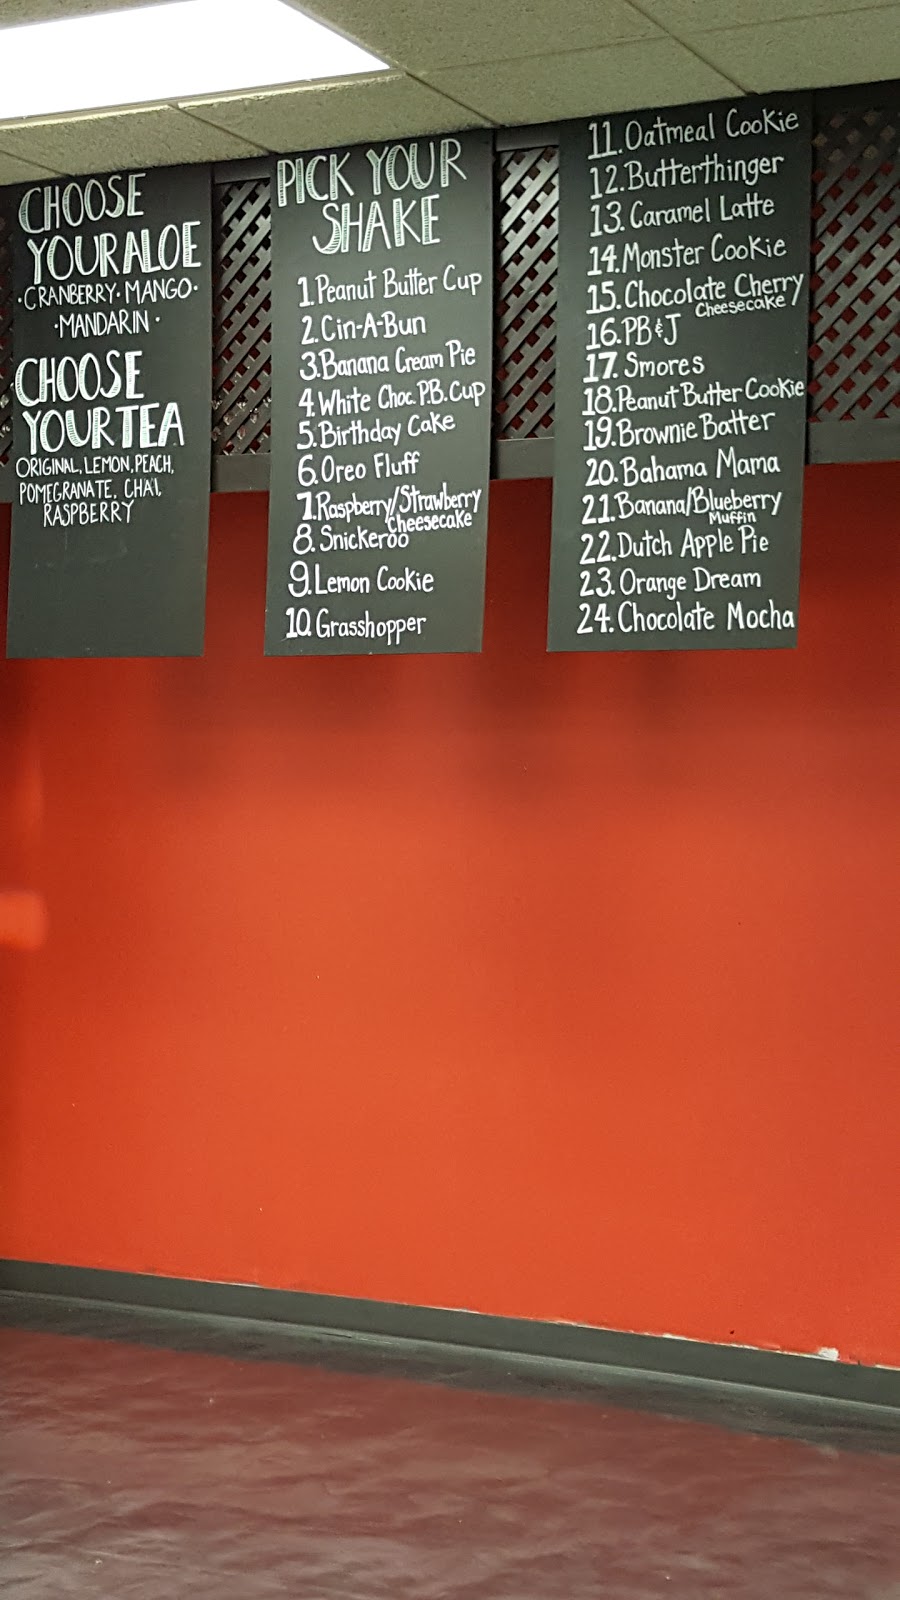 CHOOSE
YOUR ALOE
·CRANBERRY·MANGO·
·MANDARIN·
CHOOSE
YOUR TEA
ORIGINAL, LEMON, PEACH,
POMEGRANATE, CHAI,
RASPBERRY
PICK YOUR
SHAKE
1. Peanut Butter Cup
2. Cin-A-Bun
3. Banana Cream Pie
4. White Choc. P.B. Cup
5. Birthday Cake
6. Oreo Fluff
7. Raspberry/Strawberry
Cheesecake
8. Snickeroo
9. Lemon Cookie
10. Grasshopper
11. Oatmeal Cookie
12. Butterthinger
13. Caramel Latte
14. Monster Cookie
15. Chocolate Cherry
Cheesecake
16. PB & J
17. Smores
18. Peanut Butter Cookie
19. Brownie Batter
20. Bahama Mama
21. Banana/Blueberry
Muffin
22. Dutch Apple Pie
23. Orange Dream
24. Chocolate Mocha